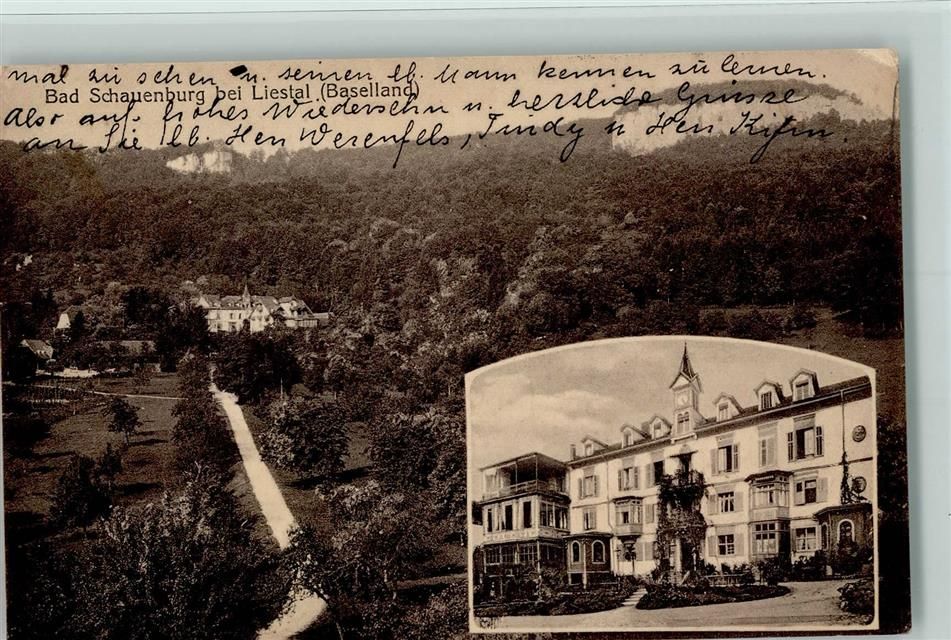 mal zu sehen u. seinen lb. Mann kennen zu lernen.
Bad Schauenburg bei Liestal (Baselland)
Also auf frohes Wiedersehn u. herzliche Grüsse
an Sie lb. Herr Werenfels, Trudy u Herr